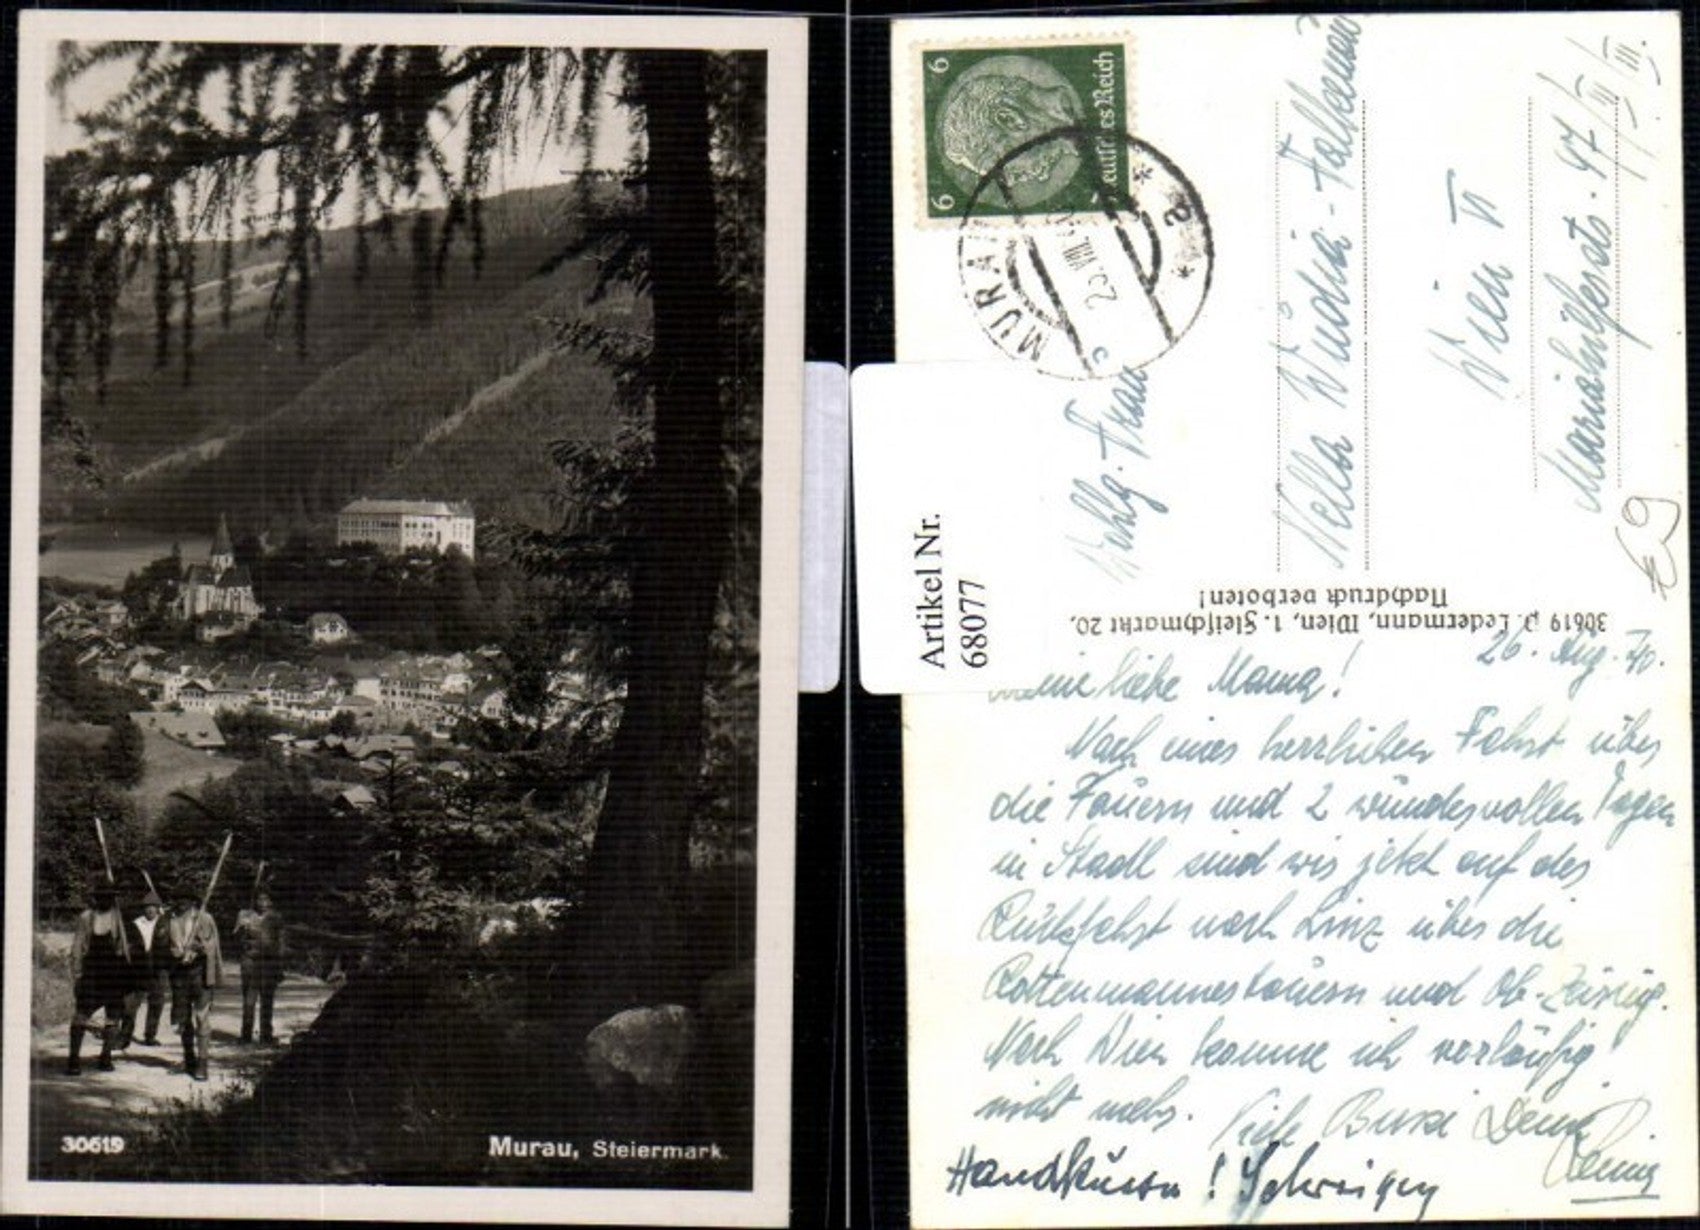 30619
Murau, Steiermark
Deutsches Reich
6
6
MURAU
a
Artikel Nr.
68077
Wohlg. Frau
Nella
Wien VI
Mariahilferstr. 47/III/III.
€ 9
30619 P. Ledermann, Wien, 1. Fleischmarkt 20.
Nachdruck verboten!
26. Aug. 40.
Meine liebe Mama!
Nach einer herrlichen Fahrt über
die Tauern und 2 wundervollen Tagen
in Stadl sind wir jetzt auf der
Rückfahrt nach Linz über die
Rottenmannertauern und Ob.-Zeiring.
Nach Wien komme ich vorläufig
nicht mehr. Viele Bussi Dein
Handküsse!